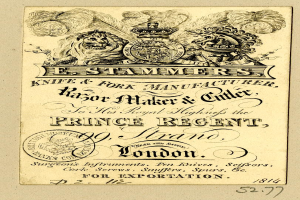 E. STAMMERS,
KNIFE & FORK MANUFACTURER,
Razor Maker & Cutler,
To His Royal Highness the
PRINCE REGENT,
99, Strand,
London.
Surgeons Instruments, Pen Knives, Scissors,
Cork Screws, Snuffers, Spurs, &c.
FOR EXPORTATION.
1814
52.77